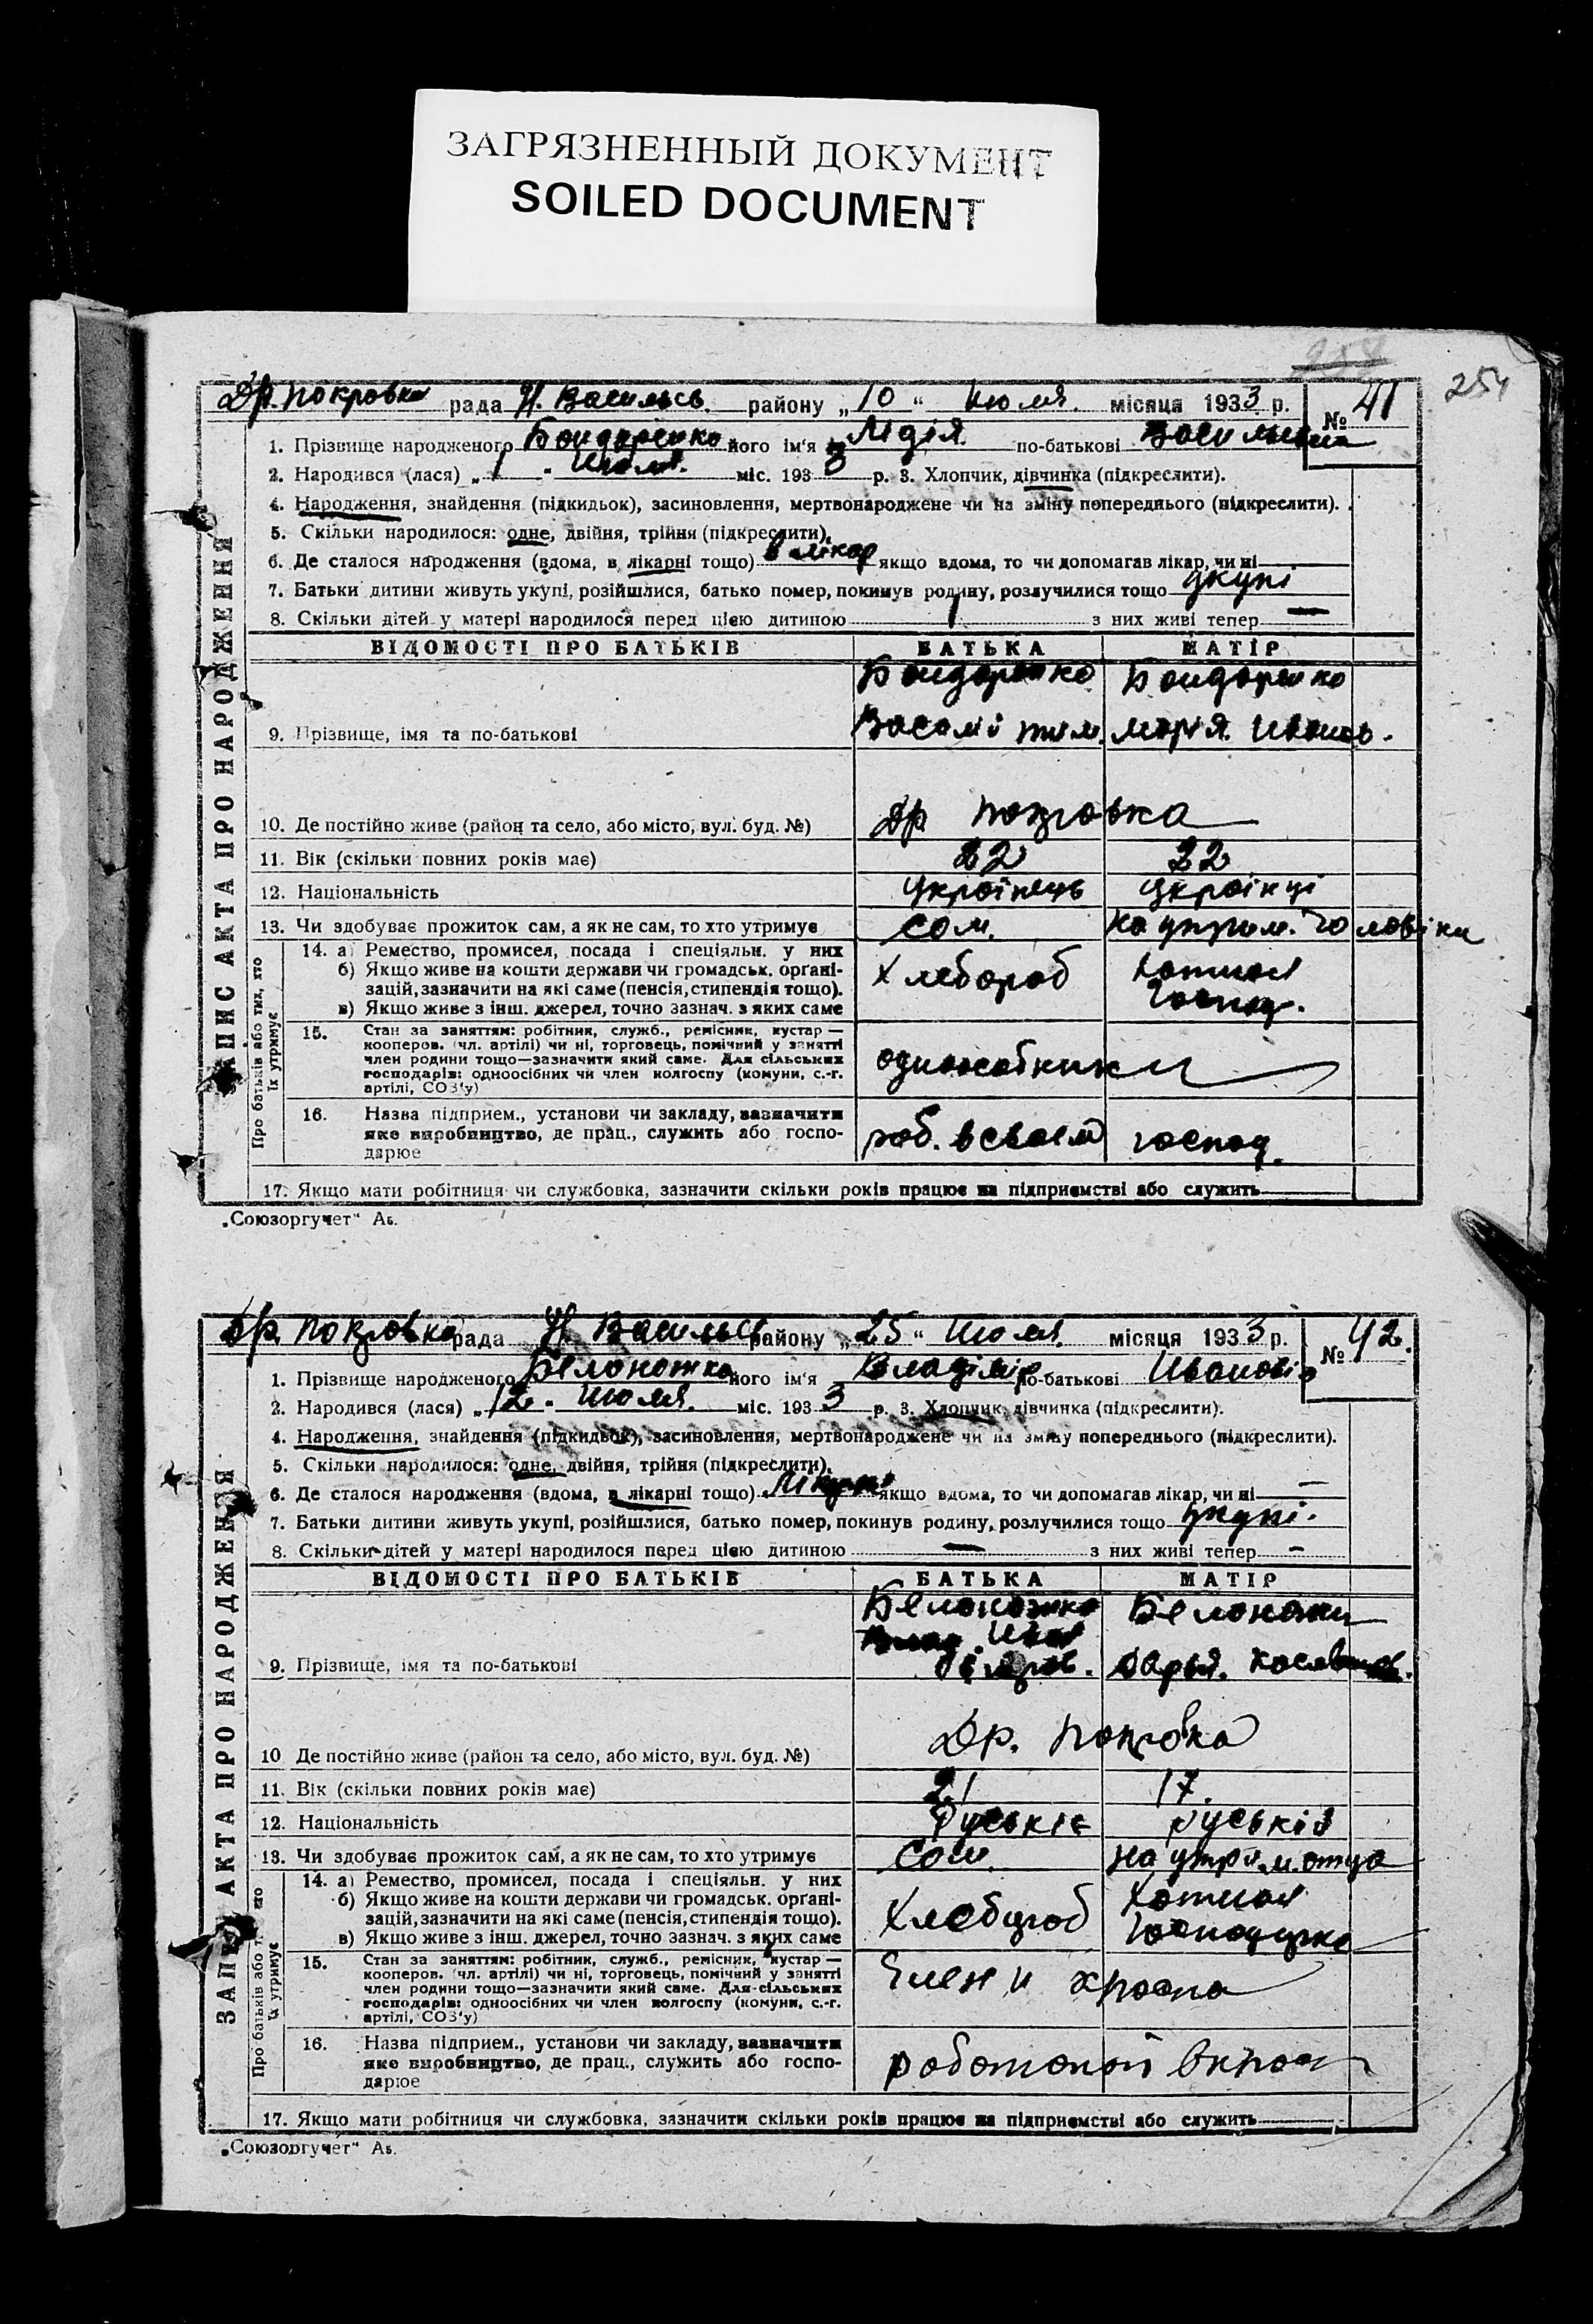 ЗАГРЯЗНЕННЫЙ ДОКУМЕНТ
SOILED DOCUMENT
254
Др. Покровка рада Н. Васильев. району „10“ Июля. місяця 1933 р. № 41
ЗАПИС АКТА ПРО НАРОДЖЕННЯ
1. Прізвище народженого Бондаренко його ім'я Лідія по-батькові Васильевна
2. Народився (лася) „1 Июля. міс. 1933 р. 3. Хлопчик, дівчинка (підкреслити).
4. Народження, знайдення (підкидьок), засиновлення, мертвонароджене чи на зміну попереднього (підкреслити).
5. Скільки народилося: одне, двійня, трійня (підкреслити).
6. Де сталося народження (вдома, в лікарні тощо) в лікар якщо вдома, то чи допомагав лікар, чи ні
7. Батьки дитини живуть укупі, розійшлися, батько помер, покинув родину, розлучилися тощо укупі
8. Скільки дітей у матері народилося перед цією дитиною 1 з них живі тепер —
ВІДОМОСТІ ПРО БАТЬКІВ БАТЬКА МАТІР
Бондаренко Бондаренко
9. Прізвище, імя та по-батькові Василий тим. Марія Иванов.
10. Де постійно живе (район та село, або місто, вул. буд. №) Др Покровка
11. Вік (скільки повних років має) 22 22
12. Національність Українець українці
13. Чи здобуває прожиток сам, а як не сам, то хто утримує сом. на утрим. чоловіка
Про батьків або тих, хто їх утримує
14. а) Ремество, промисел, посада і спеціяльн. у них
б) Якщо живе на кошти держави чи громадськ. орґані-
зацій, зазначити на які саме (пенсія, стипендія тощо).
в) Якщо живе з інш. джерел, точно зазнач. з яких саме
Хлебороб хатная господ.
15. Стан за заняттям: робітник, служб., ремісник, кустар —
кооперов. (чл. артілі) чи ні, торговець, помічний у занятті
член родини тощо—зазначити який саме. Для сільських
господарів: одноосібних чи член колгоспу (комуни, с.-г.
артілі, СОЗ'у)
16. Назва підприєм., установи чи закладу, зазначити
яке виробництво, де прац., служить або госпо-
дарює
роб. в своем господ.
17. Якщо мати робітниця чи службовка, зазначити скільки років працює на підприємстві або служить
„Союзоргучет“ Ав.
Др. Покровка рада Н. Васильев району „25“ Июля. місяця 1933 р. № 42.
ЗАПИС АКТА ПРО НАРОДЖЕННЯ
1. Прізвище народженого Белоножко його ім'я Владімір по-батькові Иванові
2. Народився (лася) „12. Июля. міс. 1933 р. 3. Хлопчик, дівчинка (підкреслити).
4. Народження, знайдення (підкидьок), засиновлення, мертвонароджене чи на зміну попереднього (підкреслити).
5. Скільки народилося: одне, двійня, трійня (підкреслити).
6. Де сталося народження (вдома, в лікарні тощо) Лікарні якщо вдома, то чи допомагав лікар, чи ні —
7. Батьки дитини живуть укупі, розійшлися, батько помер, покинув родину, розлучилися тощо укупі.
8. Скільки дітей у матері народилося перед цією дитиною — з них живі тепер —
ВІДОМОСТІ ПРО БАТЬКІВ БАТЬКА МАТІР
Белоножко Белоножк
9. Прізвище, імя та по-батькові Дарья.
10 Де постійно живе (район та село, або місто, вул. буд. №) Др. Покровка
11. Вік (скільки повних років має) 21 17.
12. Національність Руськіє руській
13. Чи здобуває прожиток сам, а як не сам, то хто утримує Сом. на утрим. отца
Про батьків або тих, хто їх утримує
14. а) Ремество, промисел, посада і спеціяльн. у них
б) Якщо живе на кошти держави чи громадськ. орґані-
зацій, зазначити на які саме (пенсія, стипендія тощо).
в) Якщо живе з інш. джерел, точно зазнач. з яких саме
Хлебороб хатная
15. Стан за заняттям: робітник, служб., ремісник, кустар —
кооперов. (чл. артілі) чи ні, торговець, помічний у занятті
член родини тощо—зазначити який саме. Для сільських
господарів: одноосібних чи член колгоспу (комуни, с.-г.
артілі, СОЗ'у)
Член
16. Назва підприєм., установи чи закладу, зазначити
яке виробництво, де прац., служить або госпо-
дарює
17. Якщо мати робітниця чи службовка, зазначити скільки років працює на підприємстві або служить
„Союзоргучет“ Ав.